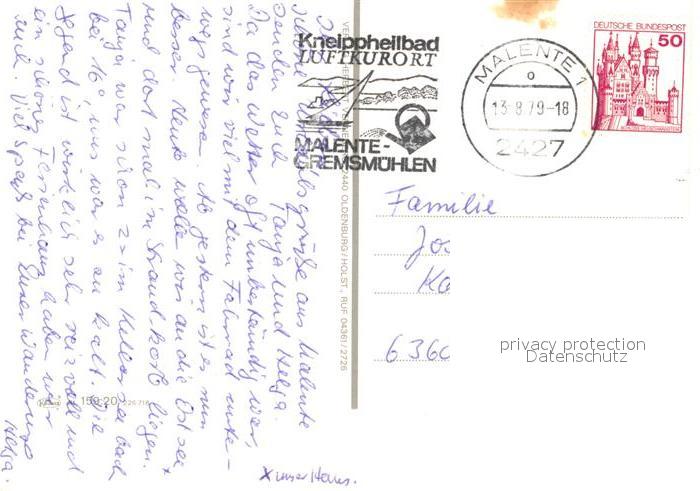 Kneippheilbad
LUFTKURORT
MALENTE-
GREMSMÜHLEN
MALENTE 1
13.8.79-18
2427
DEUTSCHE BUNDESPOST
50
Familie
Jo
Ko
6360
privacy protection
Datenschutz
Urlaubsgrüße aus Malente
senden Euch Tanja und Helga.
Da das Wetter oft unbeständig war,
sind wir viel mit dem Fahrrad unter-
wegs gewesen. Ab gestern ist es nun
besser. Heute wollen wir an die Ostsee
und dort mal im Strandkorb liegen.
Tanja war schon im Kellersee bad
bei 16° mir war es zu kalt. Die
Gegend ist wirklich sehr reizvoll und
ein schönes Ferienhaus haben wir
auch. Viel Spaß bei Eurer Wanderung
Helga.
x unser Haus.
2440 OLDENBURG/HOLST., RUF 04361/2726
159.20